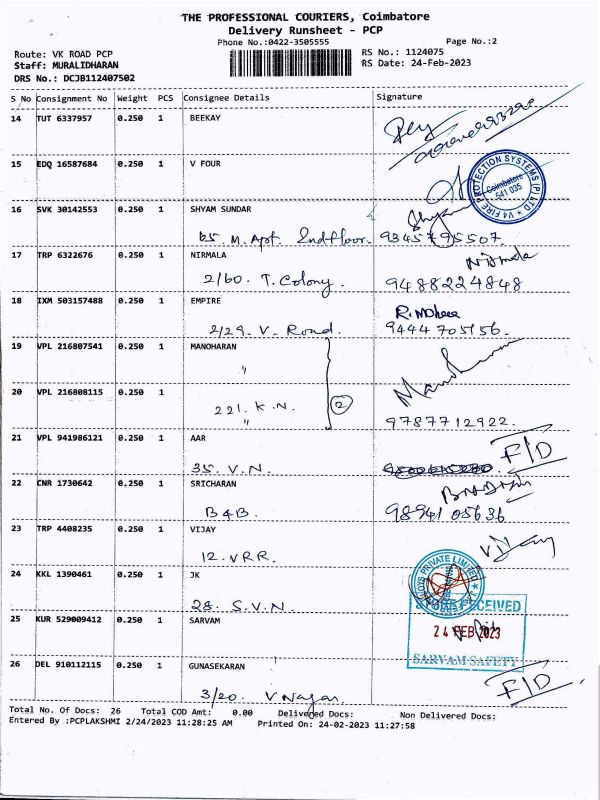 THE PROFESSIONAL COURIERS, Coimbatore
Delivery Runsheet - PCP
Phone No.:0422-3505555 Page No.:2
Route: VK ROAD PCP RS No.: 1124075
Staff: MURALIDHARAN RS Date: 24-Feb-2023
DRS No.: DCJB112407502
S No Consignment No Weight PCS Consignee Details Signature
14 TUT 6337957 0.250 1 BEEKAY
15 EDQ 16587684 0.250 1 V FOUR
V4 FIRE PROTECTION SYSTEMS (P) LTD
Coimbatore
641 035
16 SVK 30142553 0.250 1 SHYAM SUNDAR Shyam
65. M. Apt. 2nd floor. 9345795507
17 TRP 6322676 0.250 1 NIRMALA Nirmala
2/60. T. Colony. 9488224848
18 IXM 503157488 0.250 1 EMPIRE
2/29. V. Road. 9444705156.
19 VPL 216807541 0.250 1 MANOHARAN
"
20 VPL 216808115 0.250 1
221. K. N. 2
" 9787712922.
21 VPL 941986121 0.250 1 AAR F/D
35. V. N.
22 CNR 1730642 0.250 1 SRICHARAN
B4B. 9894105636
23 TRP 4408235 0.250 1 VIJAY Vijay
12. VRR.
24 KKL 1390461 0.250 1 JK
PRIVATE LIMITED
28. S. V. N.
25 KUR 529009412 0.250 1 SARVAM
RECEIVED
24 FEB 2023
SARVAM SAFETY
26 DEL 910112115 0.250 1 GUNASEKARAN F/D
3/20. V Nagar.
Total No. Of Docs: 26 Total COD Amt: 0.00 Delivered Docs: Non Delivered Docs:
Entered By :PCPLAKSHMI 2/24/2023 11:28:25 AM Printed On: 24-02-2023 11:27:58